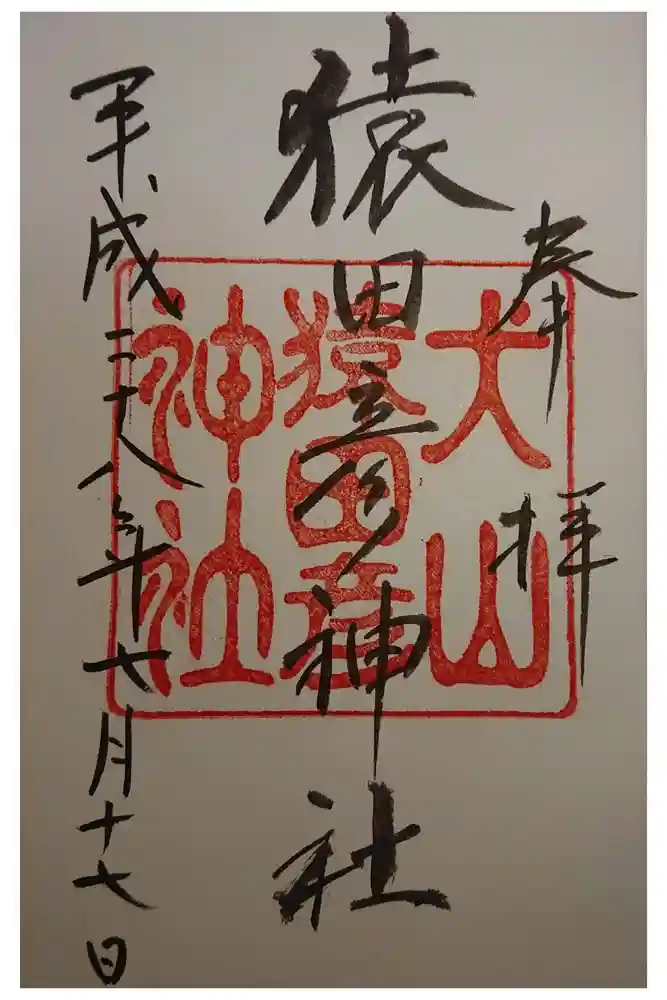 奉拝
猿田彦神社
平成二十八年七月十七日
犬山
猿田彦
神社